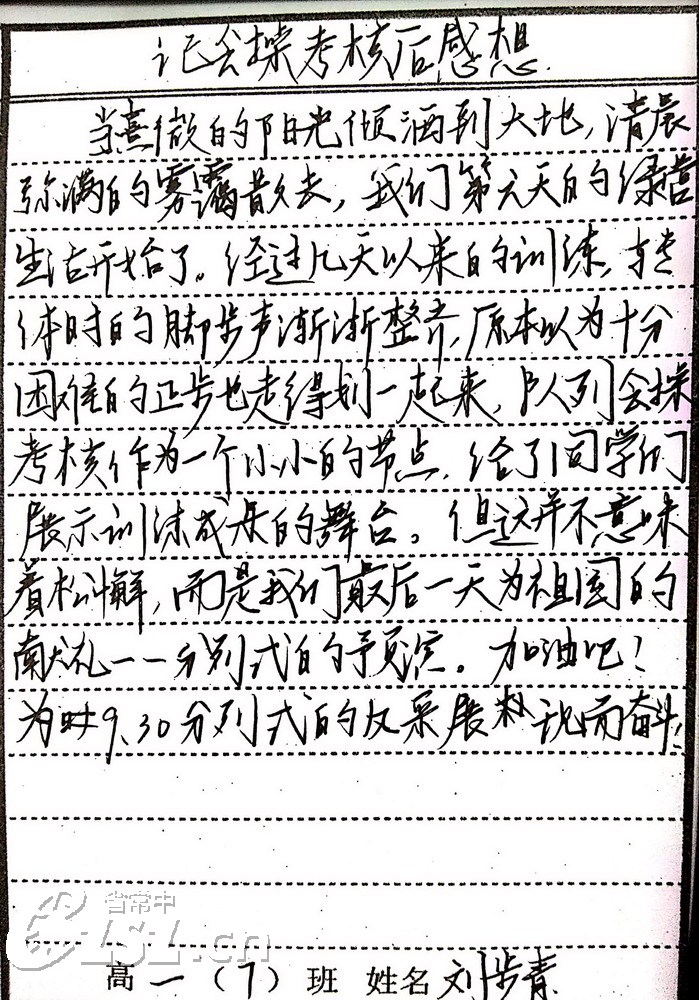 记会操考核后感想
当熹微的阳光倾洒到大地，清晨
弥漫的雾霭散去，我们第六天的绿营
生活开始了。经过几天以来的训练，转
体时的脚步声渐渐整齐，原本以为十分
困难的正步也走得划一起来，队列会操
考核作为一个小小的节点，给了同学们
展示训练成果的舞台。但这并不意味
着松懈，而是我们最后一天为祖国的
献礼——分列式的预演。加油吧！
为 9.30分列式的 采展 而奋斗！
省常中
CSLSZ.cn
高一（7）班 姓名 刘步青